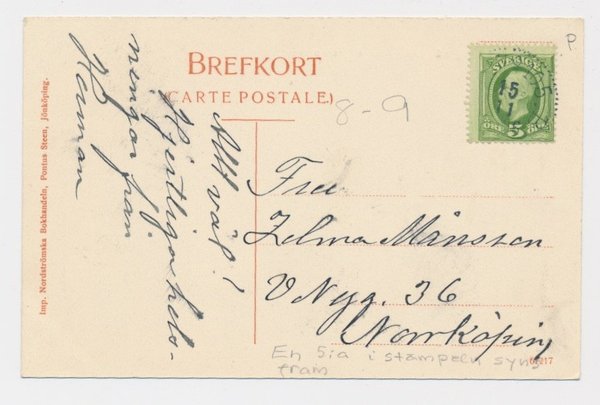 BREFKORT
(CARTE POSTALE.)
8-9
P.
SVERIGE
15
11
ÖRE 5 ÖRE
Allt väl!
Hjertliga hels-
ningar fran
Herman
Fru
Zelma Månsson
V Nyg. 36
Norrköping
En 5:a i stämpeln syns
fram
Imp. Nordströmska Bokhandeln, Pontus Steen, Jönköping.